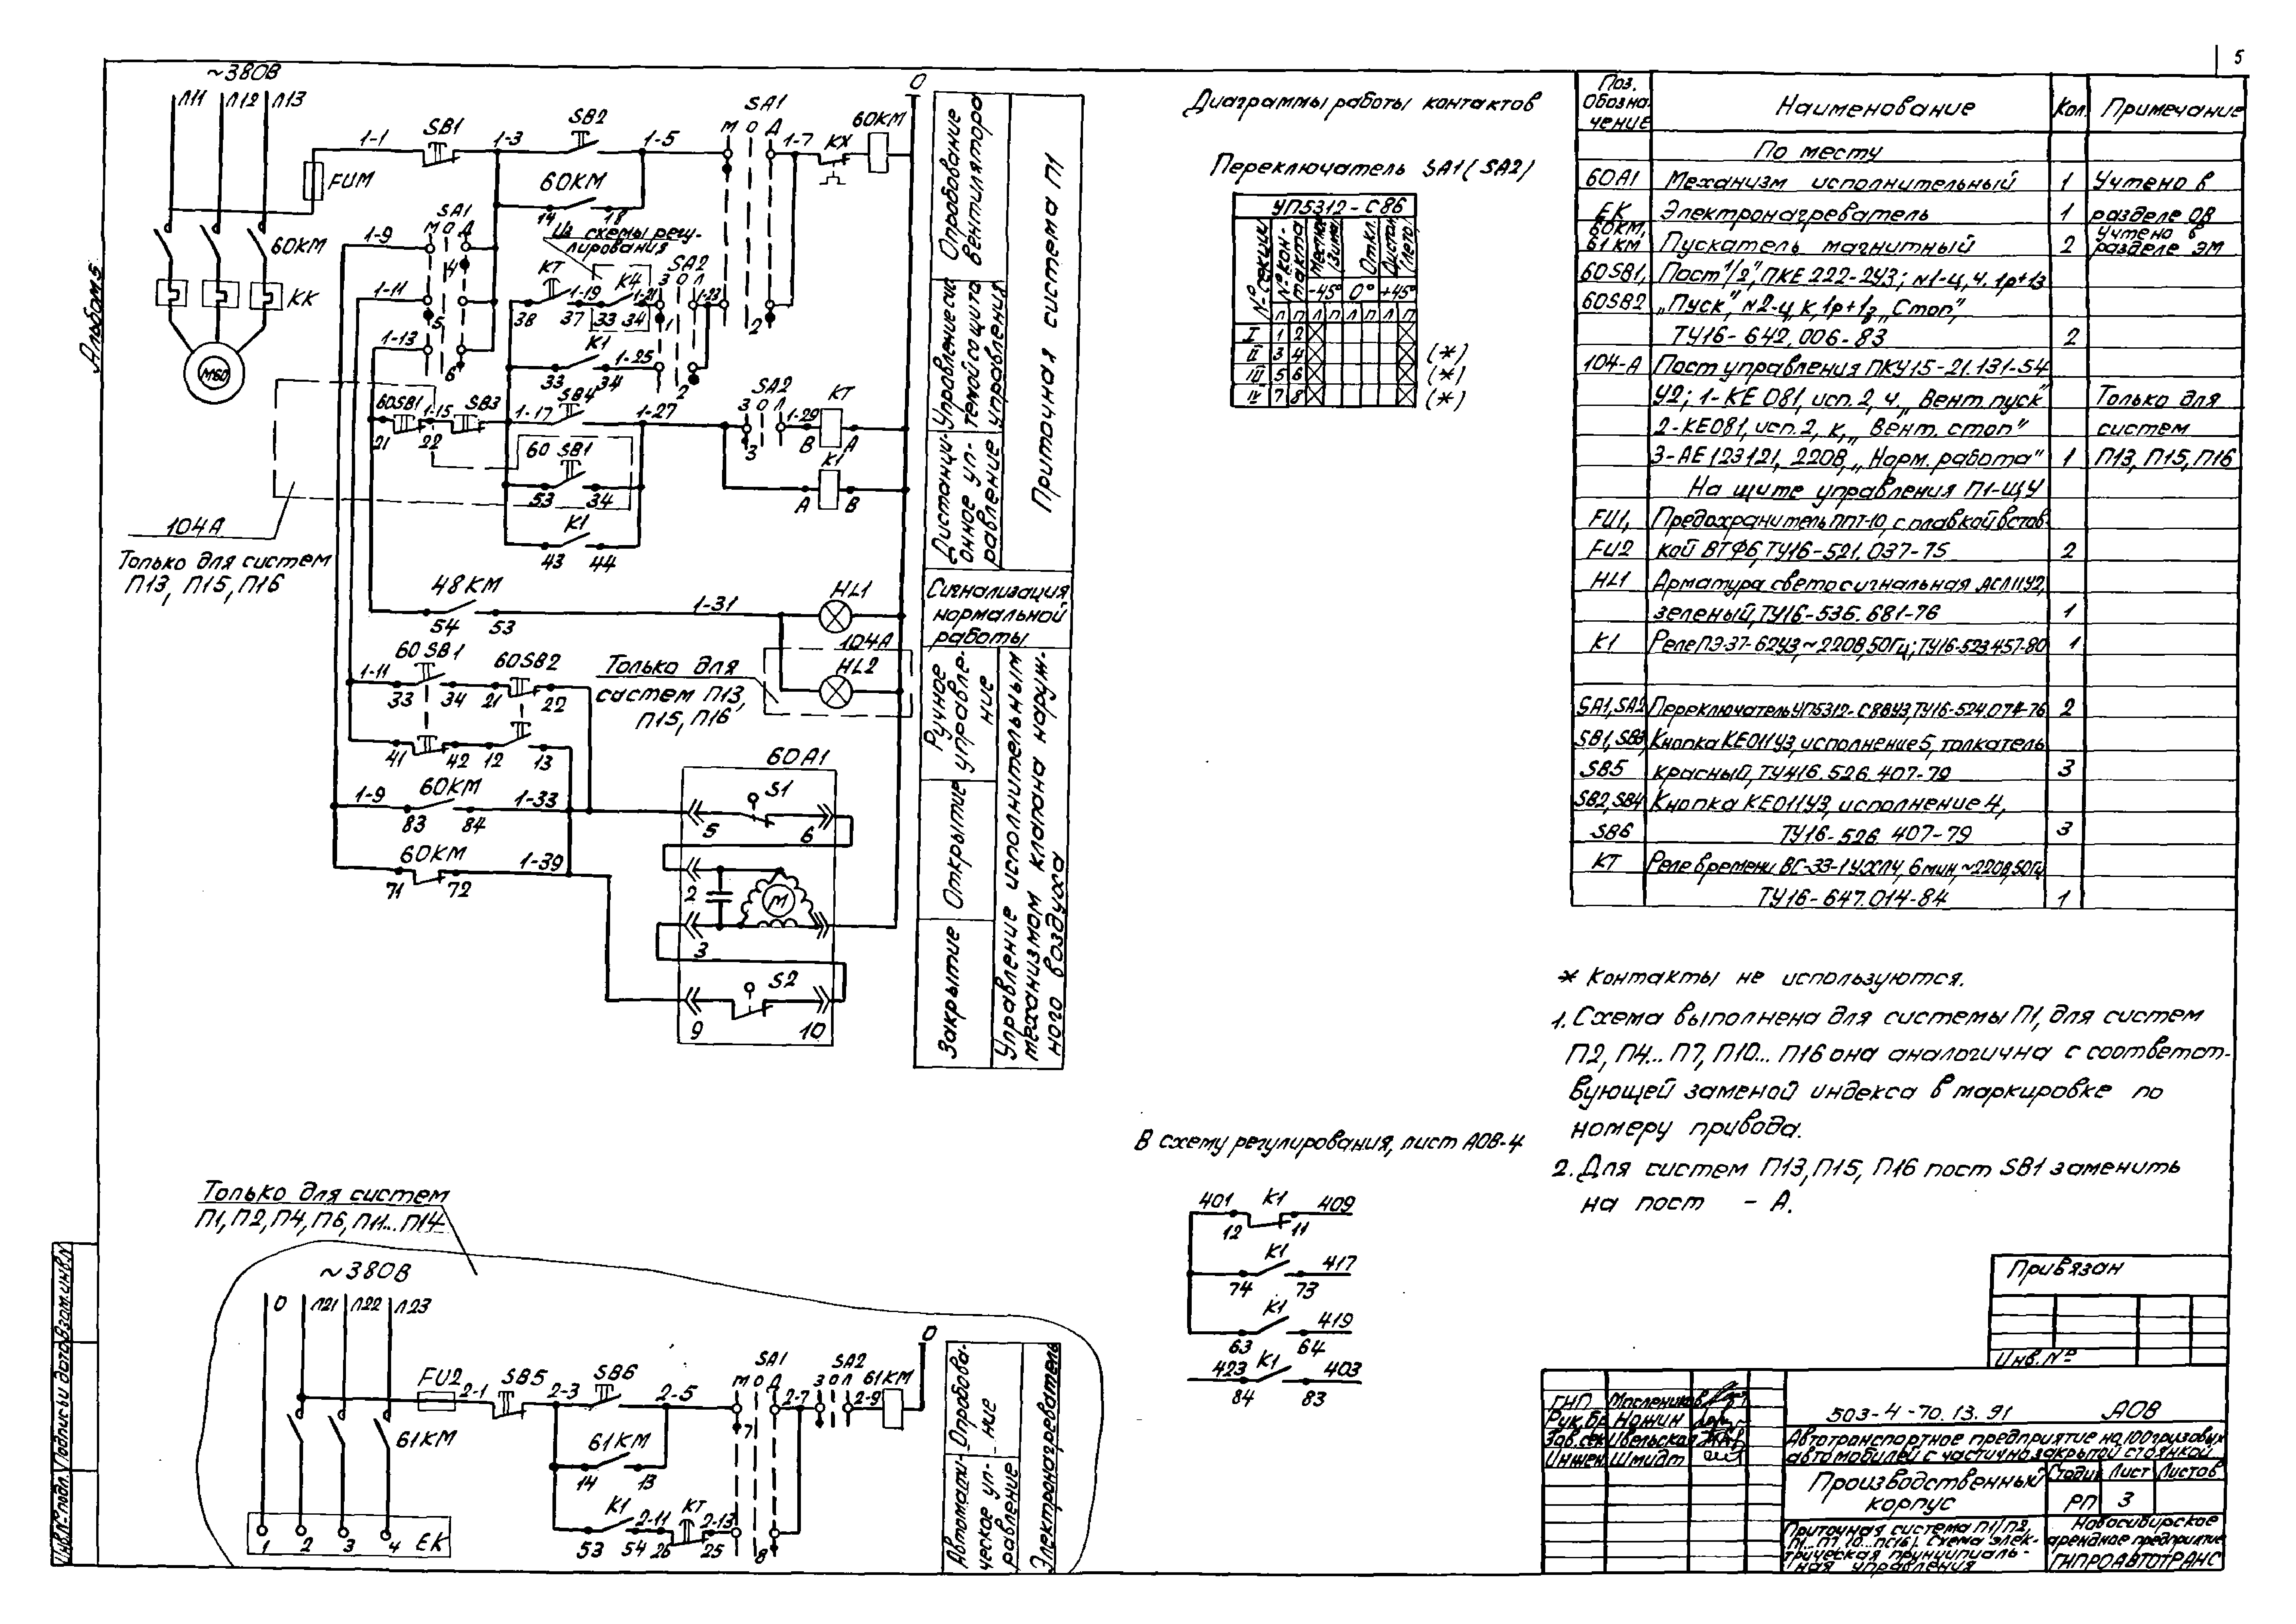 5
Альбом 5
~380В
Л11 Л12 Л13
FUM
60КМ
КК
М60
1-1 SB1 1-3 SB2 1-5 SA1 М О Д 1-7 КК 60КМ О
60КМ
14 18
Из схемы регу-
лирования
SA1
М О Д
1-9
4
1-11
5
1-13
6
КТ 1-19 К4 1-21 SA2 З О Л 1-23
38 37 33 34 1 2
К1 1-25
33 34 2
60SB1 1-15 SB3 1-17 SB4 1-27 SA2 З О Л 1-29 КТ
21 22 3 В А
60 SB1
53 34
К1
А В
К1
43 44
104А
Только для систем
П13, П15, П16
48КМ 1-31 HL1
54 53
104А
HL2
Только для
систем П13,
П15, П16
1-11 60SB1 60SB2
33 34 21 22
41 42 12 13
1-9 60КМ 1-33
83 84
60КМ 1-39
71 72
60А1
S1
5 6
2
М
3
S2
9 10
Опробование вентилятора
Управление системой со щита управления
Дистанционное управление
Приточная система П1
Сигнализация
нормальной
работы
Ручное управление
Открытие
Закрытие
Управление исполнительным
механизмом клапана наруж-
ного воздуха
Диаграммы работы контактов
Переключатель SA1(SA2)
УП5312-С86
№ секции
№ контакта
Местное /Зима/
Откл.
Дистан. /Лето/
-45° 0° +45°
Л П Л П Л П Л П
I 1 2
II 3 4 (*)
III 5 6 (*)
IV 7 8 (*)
Поз. Обозначение Наименование Кол. Примечание
По месту
60А1 Механизм исполнительный 1 Учтено в
ЕК Электронагреватель 1 разделе ОВ
60КМ, 61КМ Пускатель магнитный 2 Учтено в разделе ЭМ
60SB1, Пост "1/2", ПКЕ 222-2У3; №1-Ц, Ч. 1р+1з
60SB2 „Пуск", №2-Ц, К, 1р+1з „Стоп",
ТУ16-642,006-83 2
104-А Пост управления ПКУ15-21.131-54
У2; 1-КЕ 081, исп. 2, Ч „Вент. пуск" Только для
2-КЕ081, исп. 2, К, „Вент. стоп" систем
3-АЕ123121, 220В, „Норм. работа" 1 П13, П15, П16
На щите управления П1-ЩУ
FU1, Предохранитель ППТ-10, с плавкой встав-
FU2 кой ВТФ6, ТУ16-521.037-75 2
HL1 Арматура светосигнальная АСЛ11У2,
зеленый, ТУ16-536.681-76 1
К1 Реле ПЭ-37-62У3, ~220В, 50Гц; ТУ16-523.457-80 1
SA1, SA2 Переключатель УП5312-С88У3, ТУ16-524.074-76 2
SB1, SB3, Кнопка КЕ011У3, исполнение 5, толкатель
SB5 красный, ТУ16.526.407-79 3
SB2, SB4 Кнопка КЕ011У3, исполнение 4,
SB6 ТУ16-526.407-79 3
КТ Реле времени ВС-33-1УХЛ4, 6мин, ~220В, 50Гц
ТУ16-647.014-84 1
* Контакты не используются.
1. Схема выполнена для системы П1, для систем
П2, П4... П7, П10... П16 она аналогична с соответст-
вующей заменой индекса в маркировке по
номеру привода.
2. Для систем П13, П15, П16 пост SB1 заменить
на пост - А.
В схему регулирования, лист АОВ-4
401 К1 409
12 11
К1 417
74 73
К1 419
63 64
423 К1 403
84 83
Только для систем
П1, П2, П4, П6, П11... П14
~380В
О Л21 Л22 Л23
61КМ
1 2 3 4 ЕК
FU2 2-1 SB5 2-3 SB6 2-5 SA1 М О Д 2-7 SA2 З О Л 2-9 61КМ О
7
61КМ
14 13
К1 2-11 КТ 2-13
53 54 26 25 8
Опробова-
ние
Автомати-
ческое уп-
равление
Электронагреватель
Привязан
Инв.№
ГИП Маслеников
Рук.бр Ножин
Зав.сек Ивельская
Инжен Шмидт
503-4-70.13.91 АОВ
Автотранспортное предприятие на 100 грузовых
автомобилей с частично закрытой стоянкой
Производственный
корпус
Стадия Лист Листов
РП 3
Приточная система П1 (П2,
П4...П7, 10...П16). Схема элек-
трическая принципиаль-
ная управления
Новосибирское
арендное предприятие
ГИПРОАВТОТРАНС
Инв.№ подл. Подпись и дата Взам.инв.№